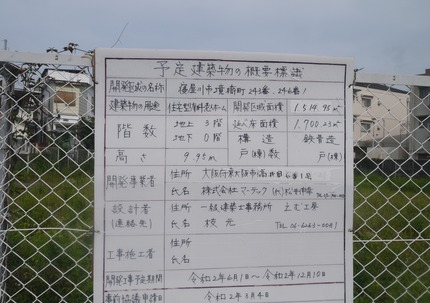 予定建築物の概要標識
開発区域の名称 寝屋川市境橋町243番、246番1
建築物の用途 住宅型有料老人ホーム 開発区域面積 1,514.95㎡
階数 地上 3階 延べ床面積 1,700.23㎡
地下 0階 構造 鉄骨造
高さ 9.95m 戸(棟)数 戸(棟)
開発事業者 住所 大阪府東大阪市
氏名 株式会社マーテック
設計者 住所 一級建築士事務所 工房
(連絡先) 氏名 枝元 TEL 06-6265-0081
工事施工者 住所
氏名
開発等予定期間 令和2年6月1日～令和2年12月10日
事前協議申請日 令和2年3月4日